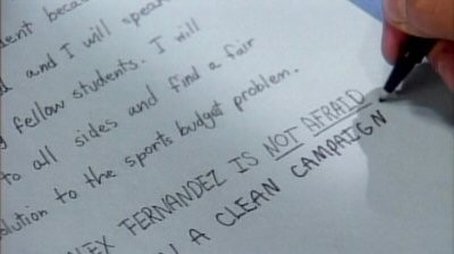 and I will
fellow students. I will
to all sides and find a fair
solution to the sports budget problem.
FERNANDEZ IS NOT AFRAID
A CLEAN CAMPAIGN